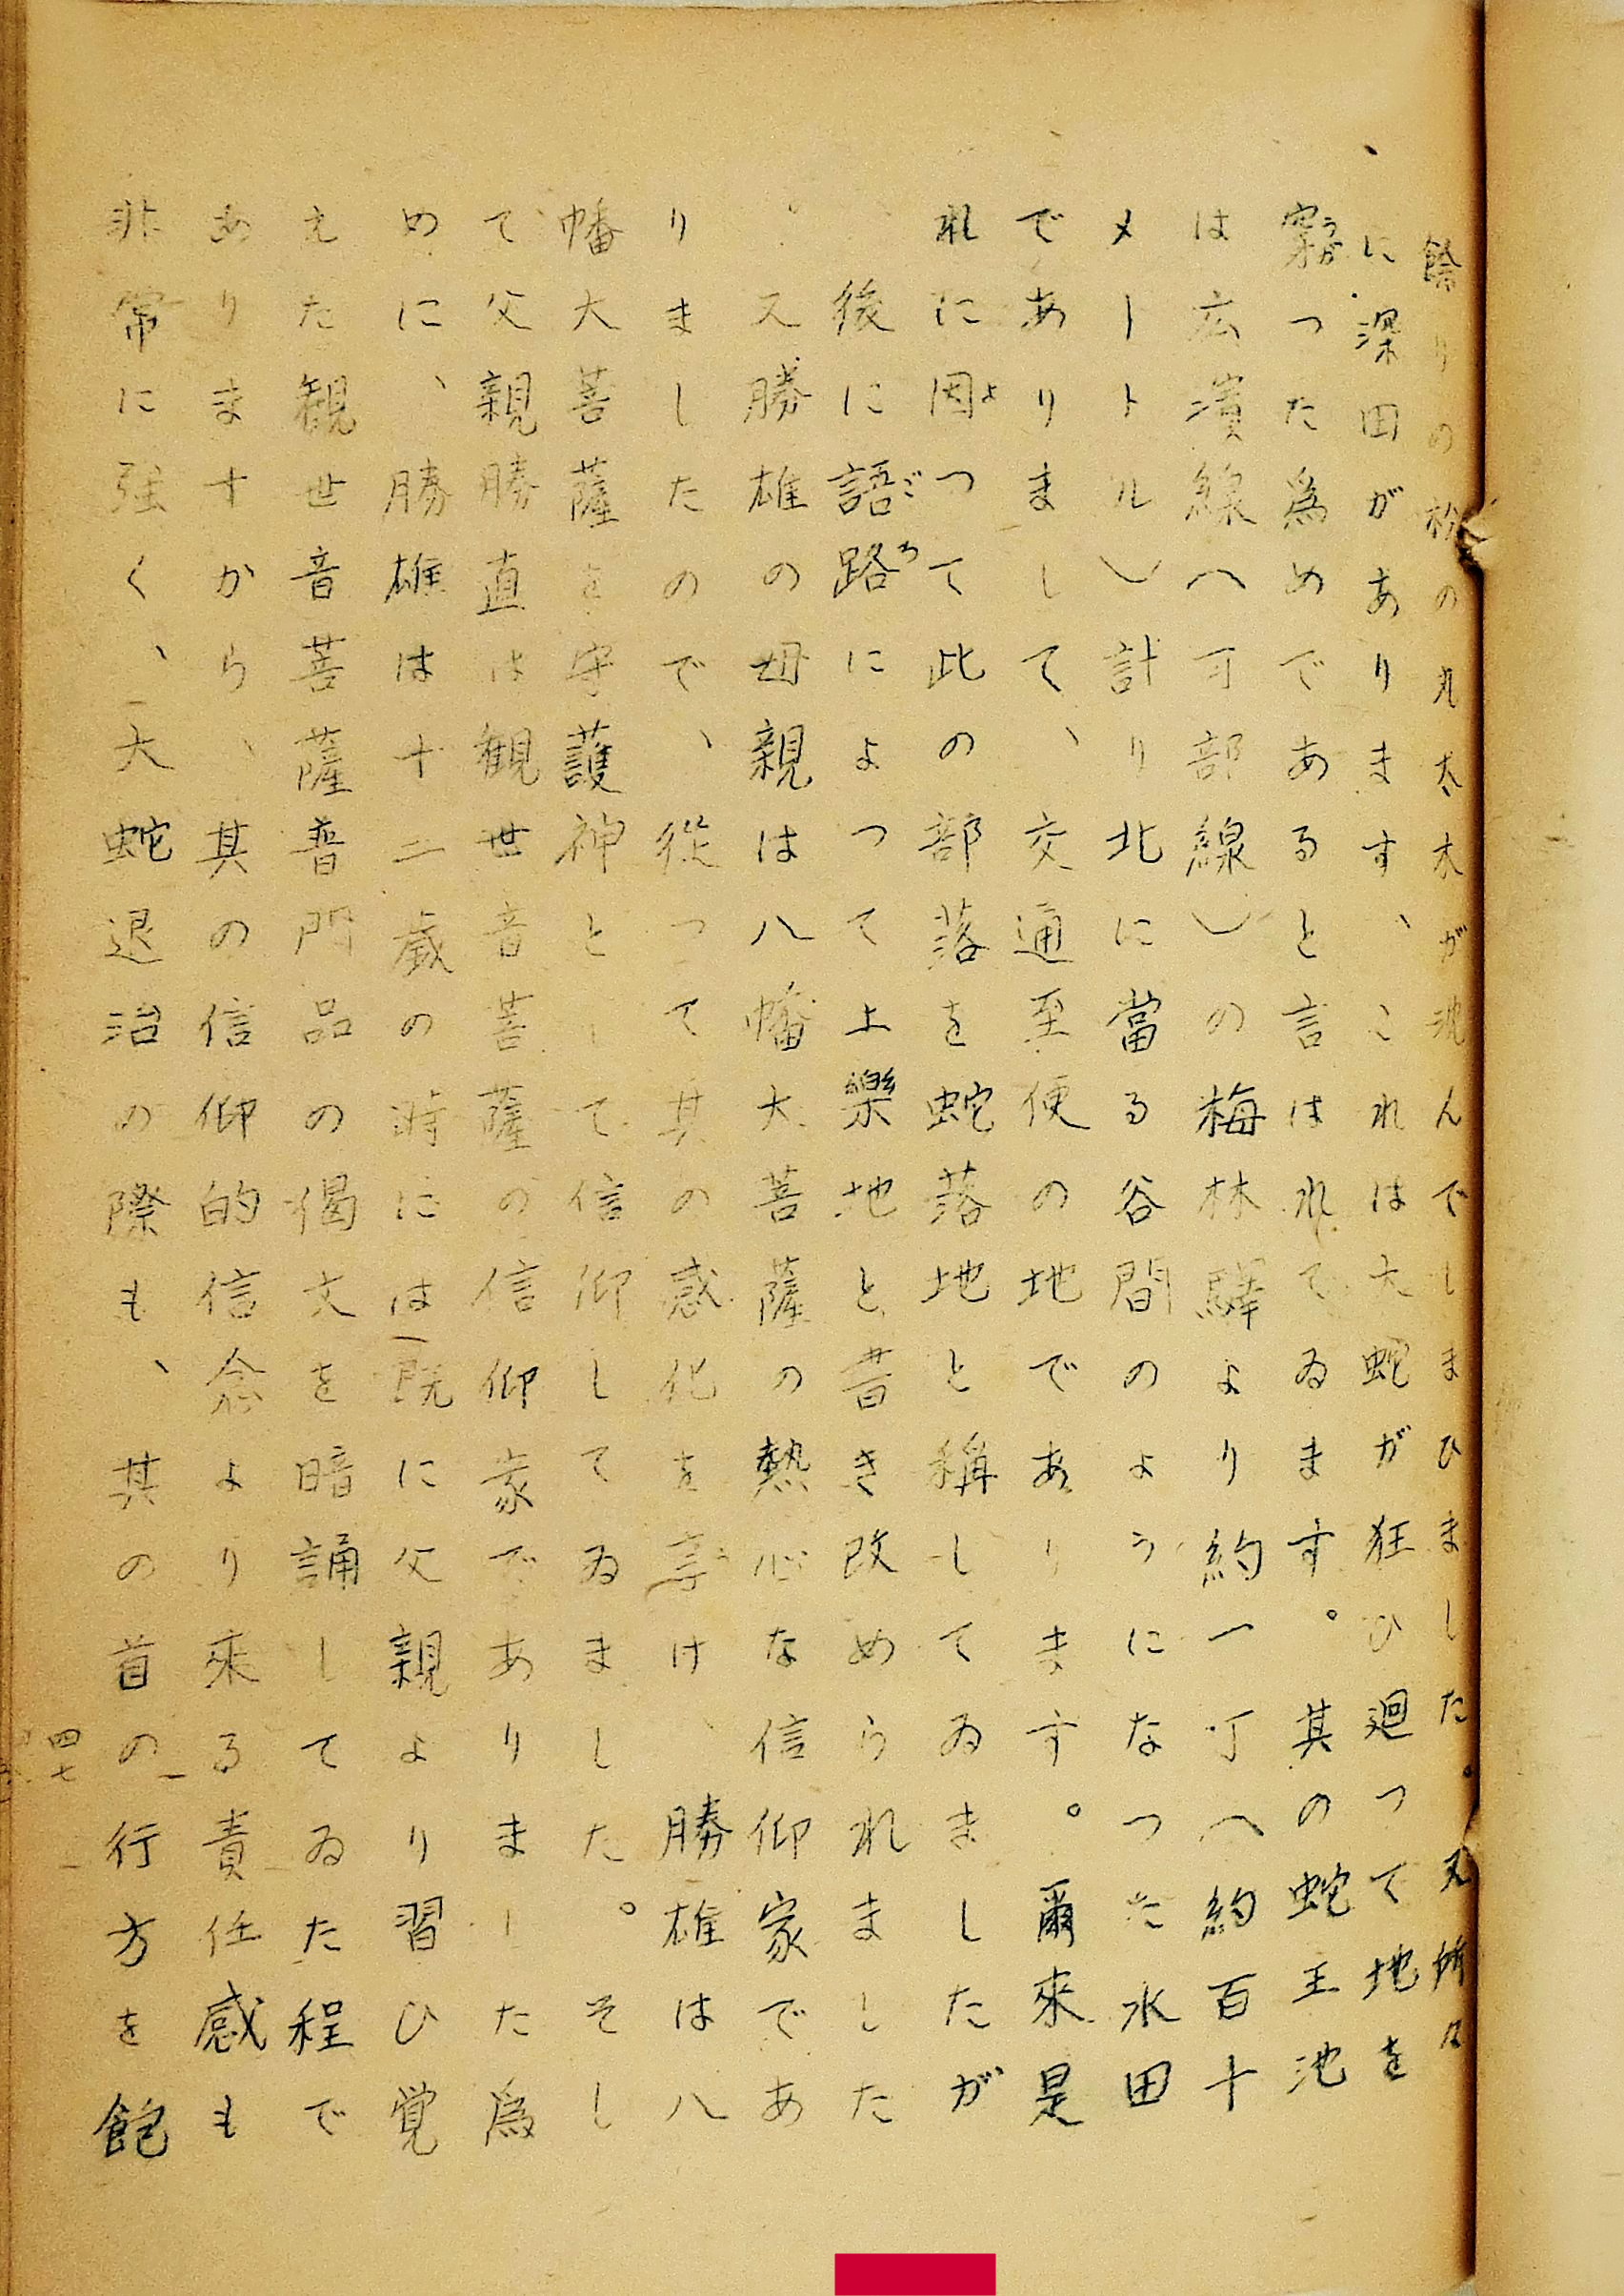 餘りの松の丸太太が沈んでしまひました。又所々
に深田があります、これは大蛇が狂ひ廻つて地を
穿つた為めであると言はれてゐます。其の蛇王池
は広濱線(可部線)の梅林驛より約一丁(約百十
メートル)計り北に當る谷間のようになつた水田
でありまして、交通至便の地であります。爾來是
れに因つて此の部落を蛇落地と稱してゐましたが
後に語路によつて上樂地と書き改められました
。又勝雄の母親は八幡大菩薩の熱心な信仰家であ
りましたので、従つて其の感化を享け、勝雄は八
幡大菩薩を守護神として信仰してゐました。そし
て父親勝直は観世音菩薩の信仰家でありました為
めに、勝雄は十二歳の時には既に父親より習ひ覚
えた観世音菩薩普門品の偈文を暗誦してゐた程で
ありますから、其の信仰的信念より來る責任感も
非常に強く、大蛇退治の際も、其の首の行方を飽
四七